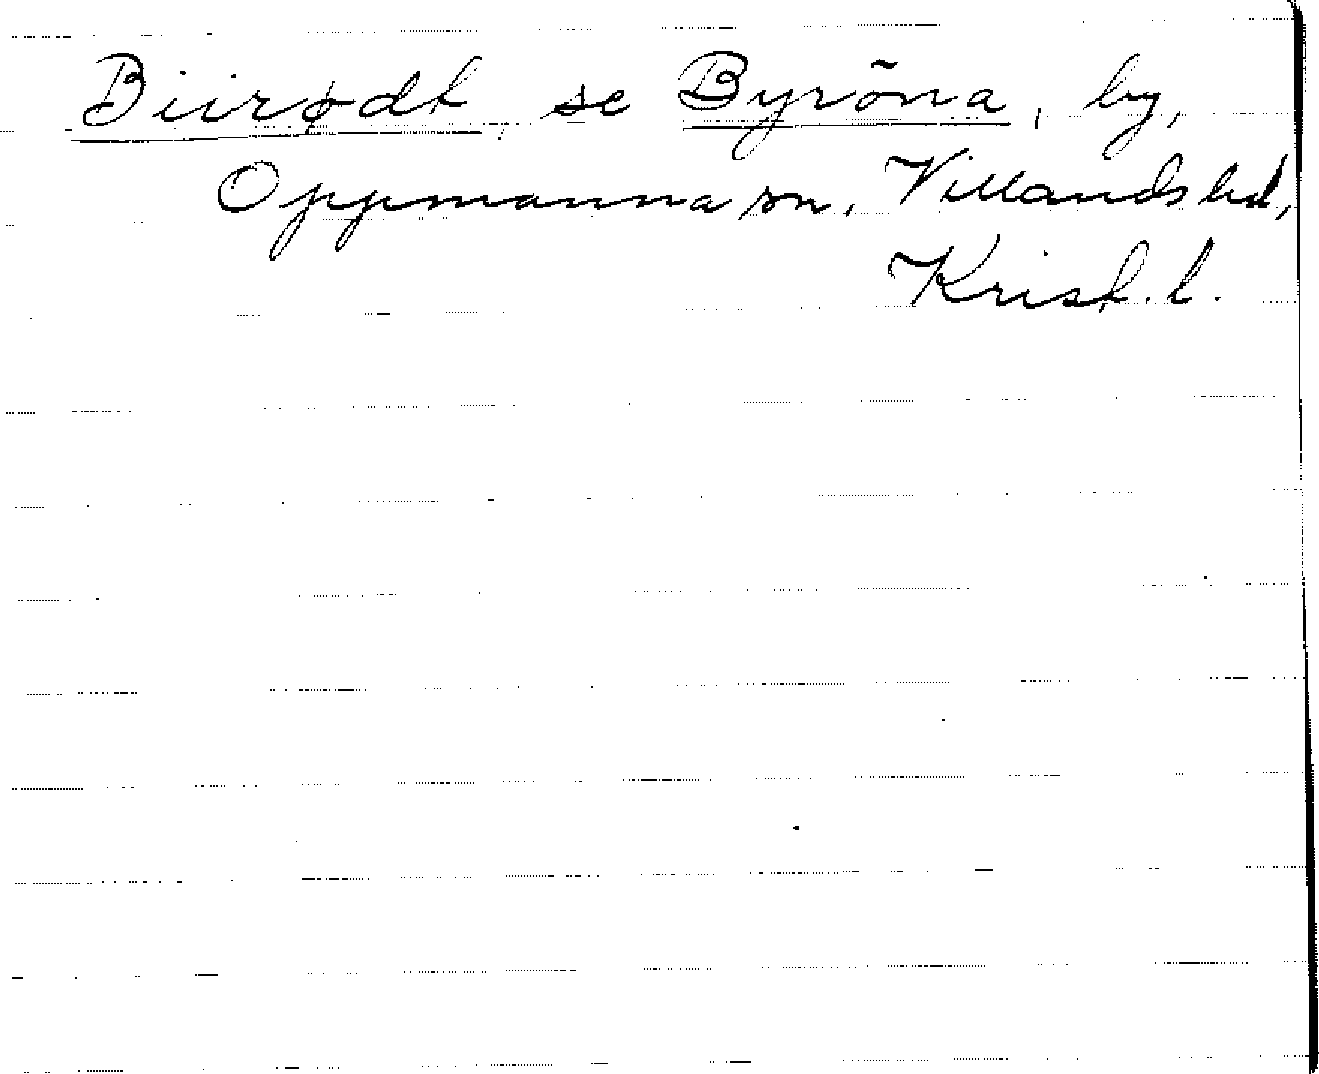 Biirødt, se Byröna, by,
Oppmanna sn, Villands hd,
Krist. l.